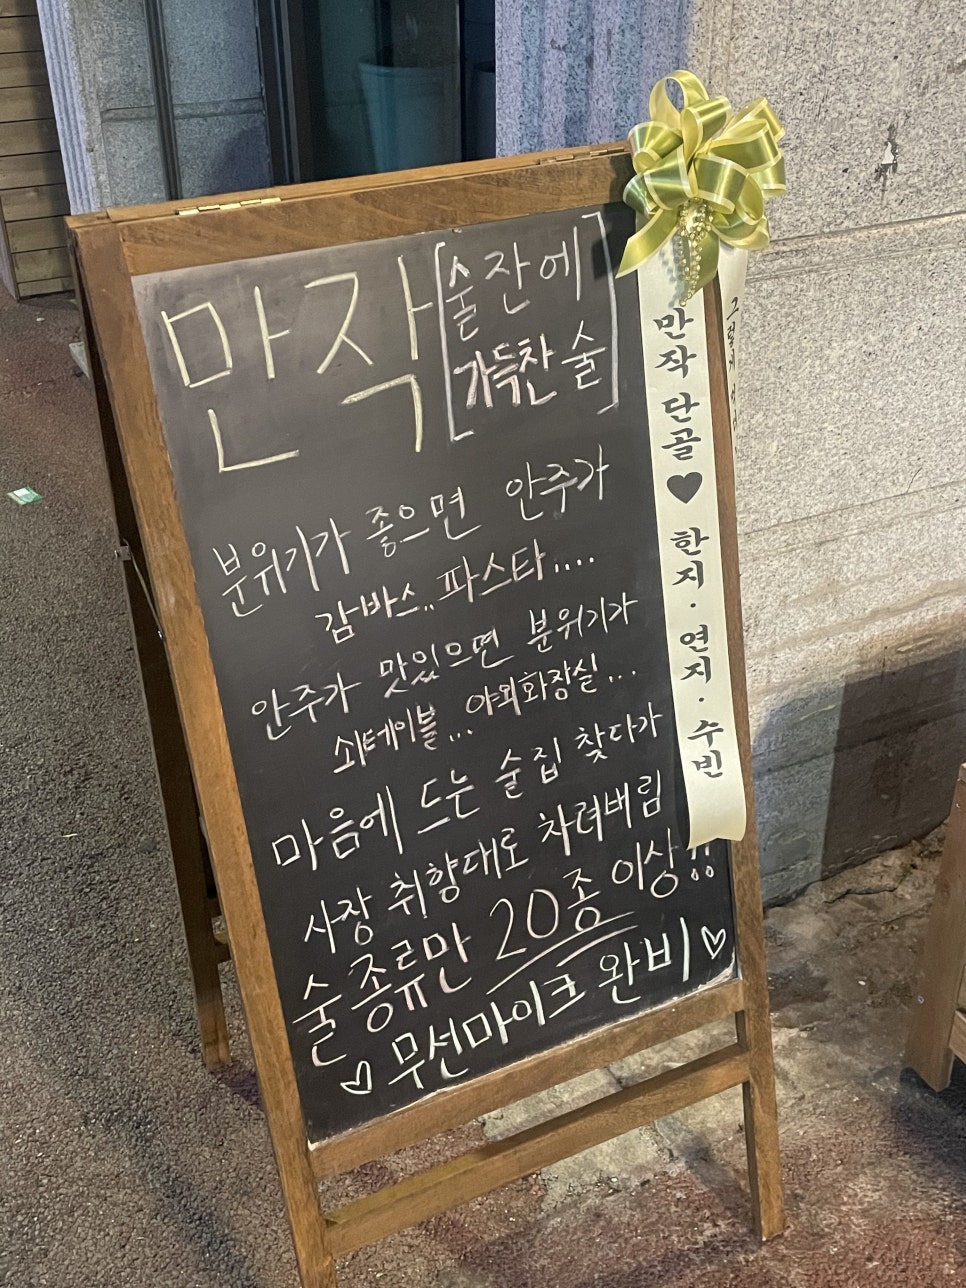 만작 [술잔에
가득찬 술]
분위기가 좋으면 안주가
감바스.. 파스타....
안주가 맛있으면 분위기가
쇠테이블... 야외화장실...
마음에 드는 술집 찾다가
사장 취향대로 차려버림
술 종류만 20종 이상!!
♡ 무선마이크 완비 ♡
만작 단골 ♥ 한지 · 연지 · 수빈
그렇게